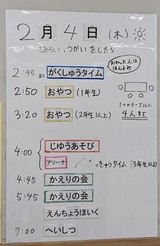 2月4日(木)
てあらい、うがいをしたら
2:45 がくしゅうタイム
2:50 おやつ(1年生)
3:20 おやつ(2年生以上)
4人まで
4:00 じゆうあそび
アリーナ
タイム(3年生以上)
4:45 かえりの会
5:45 かえりの会
えんちょうほいく
7:00 へいしつ